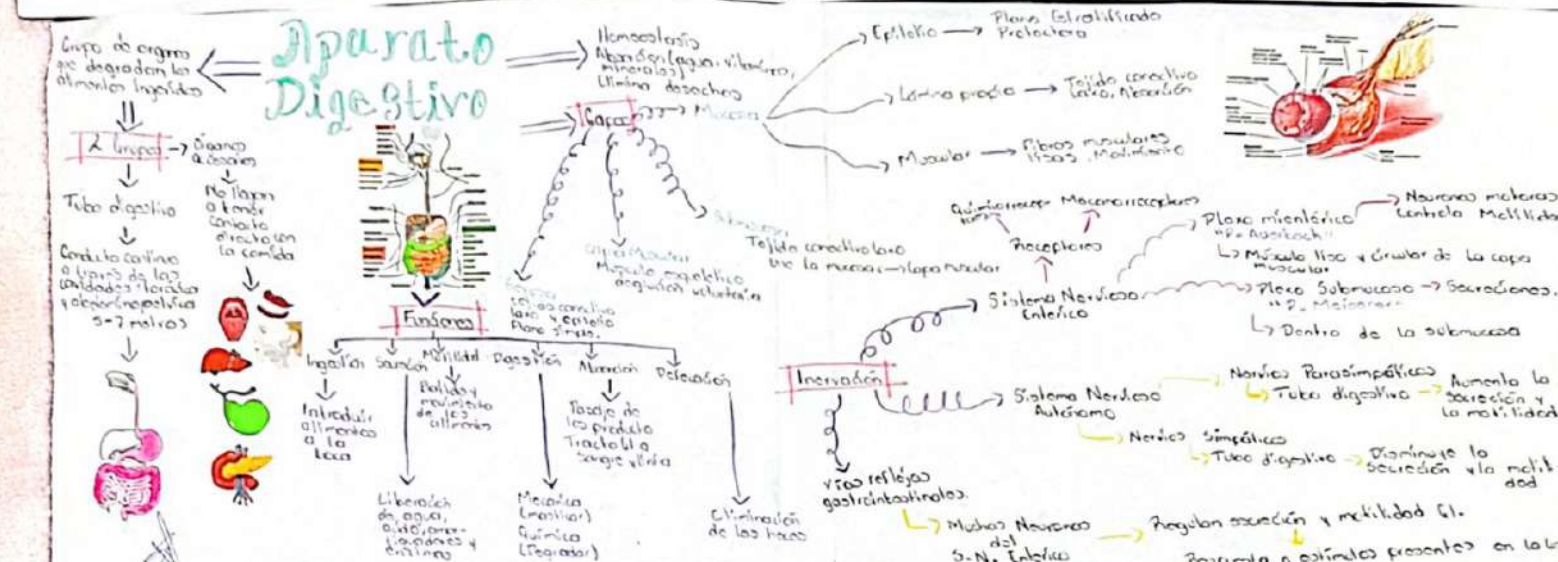 Aparato
Digestivo
Grupo de organos
que degradan los
alimentos ingeridos
2 Grupos
Organos
accesorios
No llegan
a tener
contacto
directo con
la comida
Tubo digestivo
Conducto continuo
a traves de las
cavidades toracica
y abdominopelvica
5-7 metros
Homeostasis
Absorcion (agua, vitaminas,
minerales)
Elimina desechos
Capas
Mucosa
Epitelio
Plano Estratificado
Protectora
Lámina propia
Tejido conectivo
laxo, Absorción
Muscular
Fibras musculares
lisas, Movimiento
Submucosa
Tejido conectivo laxo
une la mucosa
Capa muscular
Capa Muscular
Musculo esqueletico
deglución voluntaria
Serosa
tejido conectivo
laxo y epitelio
Plano simple.
Funciones
Ingestión
Secreción
Motilidad
Digestión
Absorción
Defecación
Introducir
alimentos
a la
boca
Liberación
de agua,
acido, amor-
tiguadores y
enzimas
movimiento
de los
alimentos
Mecanica
(masticar)
Química
(Degradar)
Pasaje de
los producto
Tracto GI a
sangre y linfa
Eliminación
de las heces
Inervación
Sistema Nervioso
Enterico
Receptores
Quimiorrecep-
tores
Mecanorreceptores
Plexo mientérico
"P. Auerbach"
Neuronas motoras
Controla Motilidad
Músculo liso y circular de la capa
muscular
Plexo Submucoso
Secreciones.
"P. Meissner"
Dentro de la submucosa
Sistema Nervioso
Autónomo
Nervios Parasimpáticos
Tubo digestivo
Aumenta la
secreción y
la motilidad
Nervios Simpáticos
Tubo digestivo
Disminuye la
secreción y la motili
dad
Vias reflejas
gastrointestinales.
Muchas Neuronas
del
S.N. Entérico
Regulan secreción y motilidad GI.
Respuesta a estimulos presentes en la L